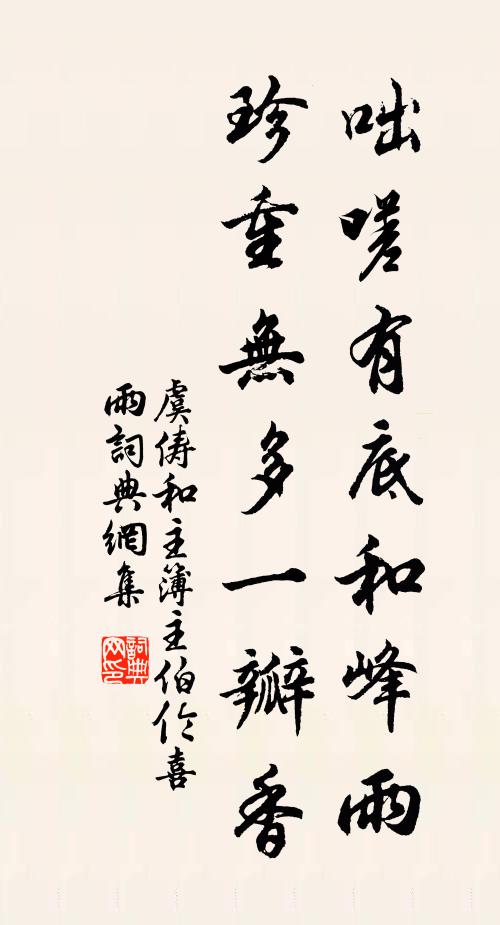 咄嗟有底和峰雨
珍重無多一瓣香
虞儔和主簿主伯伫喜
雨詞典網集
詞典网印